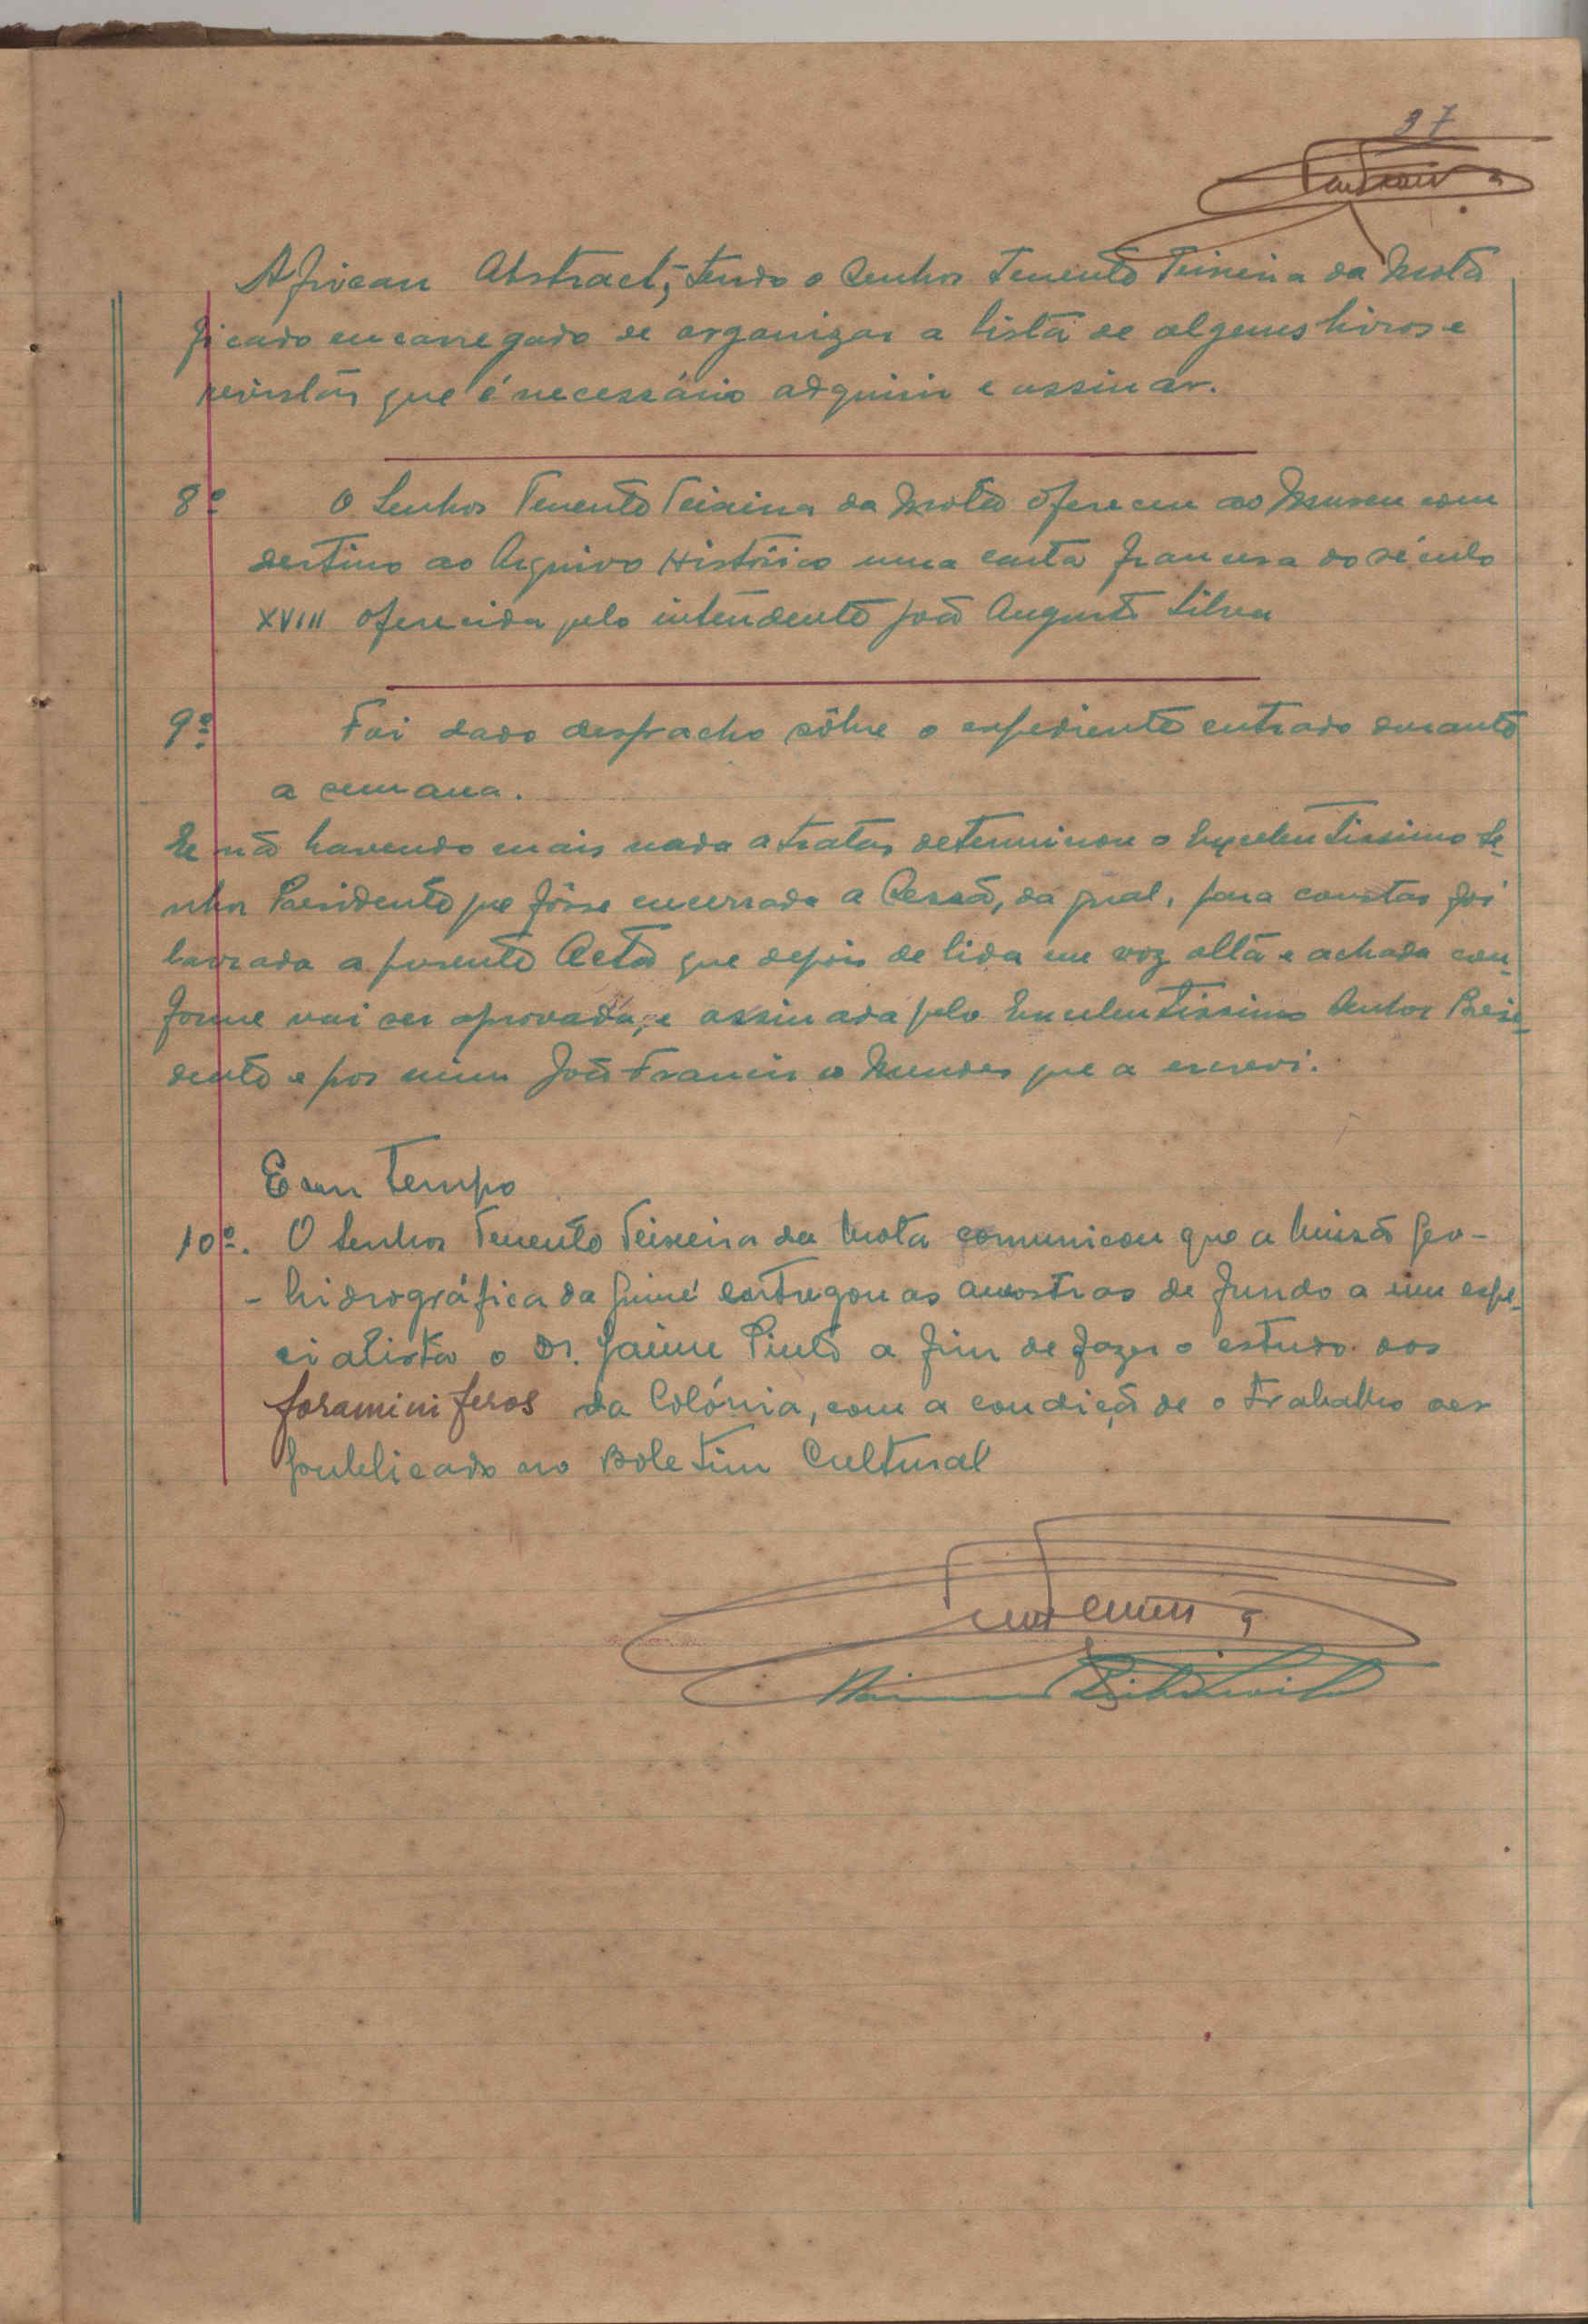 37
African Abstract, tendo o Senhor Tenente Teixeira da Mota
ficado encarregado de organizar a lista de alguns livros e
revistas que é necessário adquirir e assinar.
8º O Senhor Tenente Teixeira da Mota ofereceu ao Museu com
destino ao Arquivo Histórico uma carta francesa do século
XVIII oferecida pelo intendente João Augusto Silva
9º Foi dado despacho sôbre o expediente entrado durante
a semana.
E não havendo mais nada a tratar determinou o Excelentissimo Se-
nhor Presidente que fôsse encerrada a Sessão, da qual, para constar foi
lavrada a presente Acta que depois de lida em voz alta e achada con-
forme vai ser aprovada, e assinada pelo Excelentissimo Senhor Presi-
dente e por mim João Francisco Mendes que a escrevi.
Em tempo
10º. O Senhor Tenente Teixeira da Mota comunicou que a Missão Geo-
- hidrográfica da Guiné entregou as amostras de fundo a um espe-
cialista o Dr. Jaime Pinto a fim de fazer o estudo dos
foraminiferos da Colónia, com a condição de o trabalho ser
publicado no Boletim Cultural